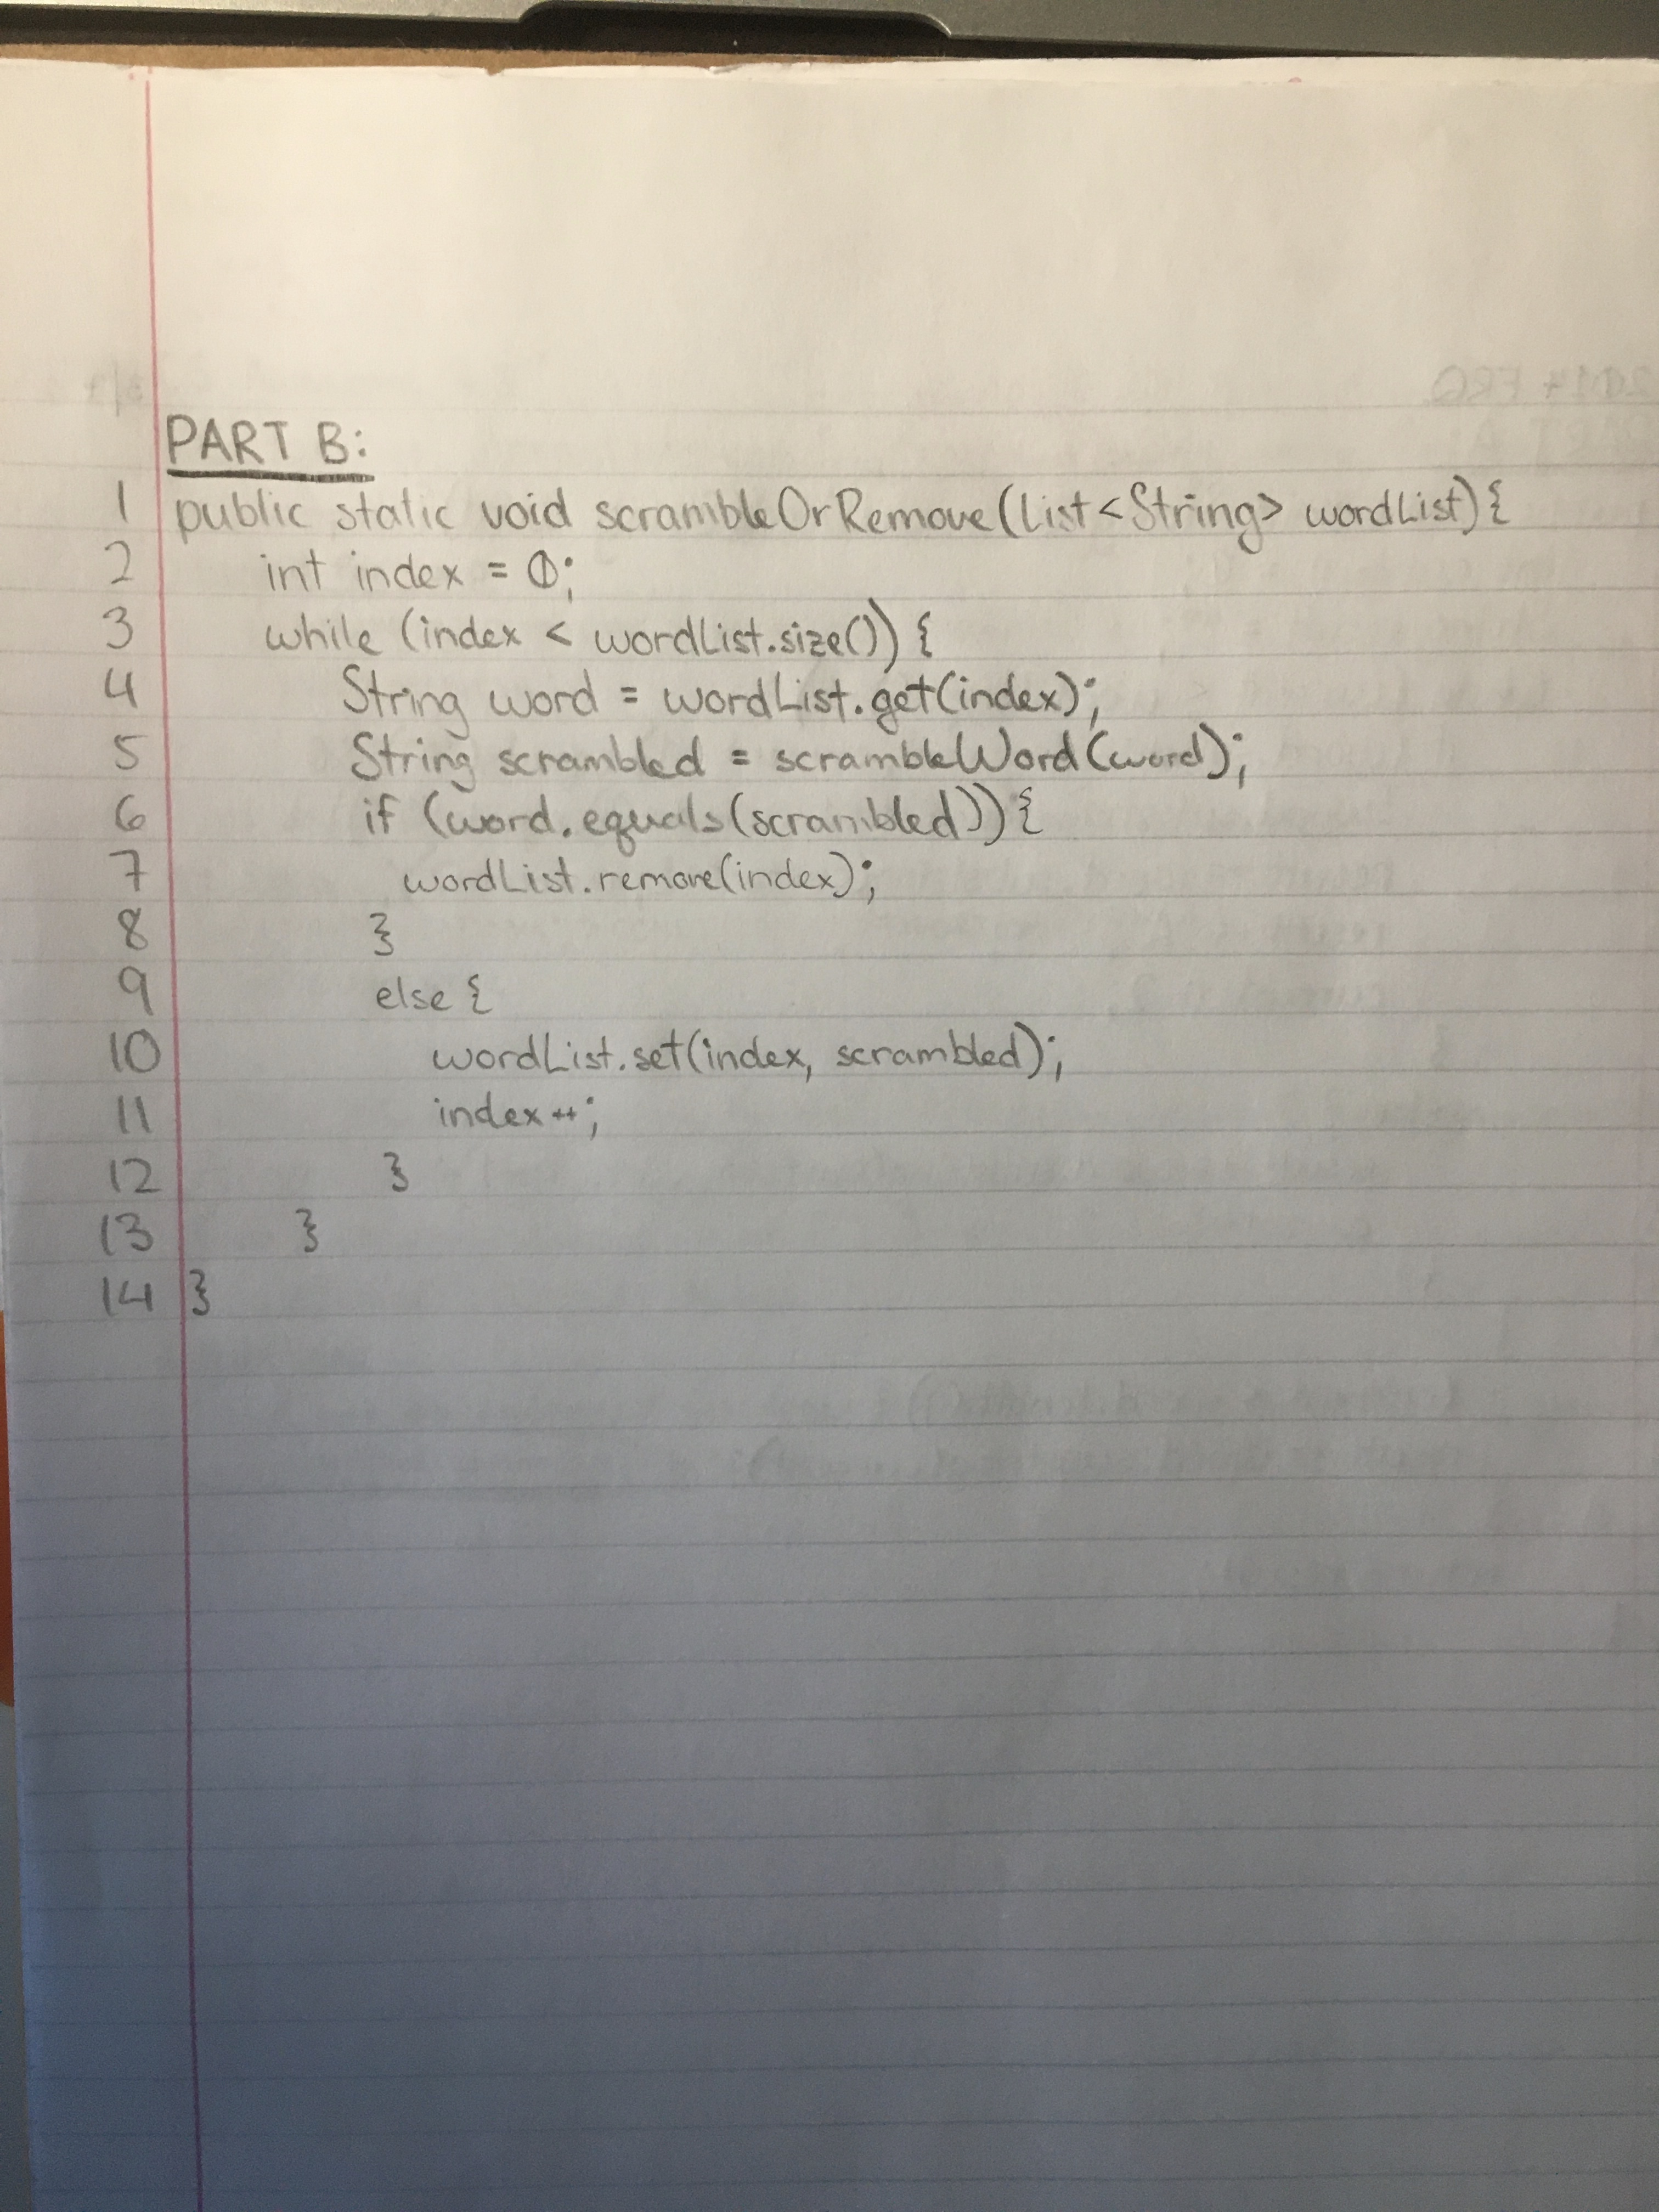 PART B:
1 public static void scrambleOrRemove(List<String> wordList){
2 int index = 0;
3 while (index < wordList.size()) {
4 String word = wordList.get(index);
5 String scrambled = scrambleWord(word);
6 if (word.equals(scrambled)){
7 wordList.remove(index);
8 }
9 else {
10 wordList.set(index, scrambled);
11 index++;
12 }
13 }
14 }